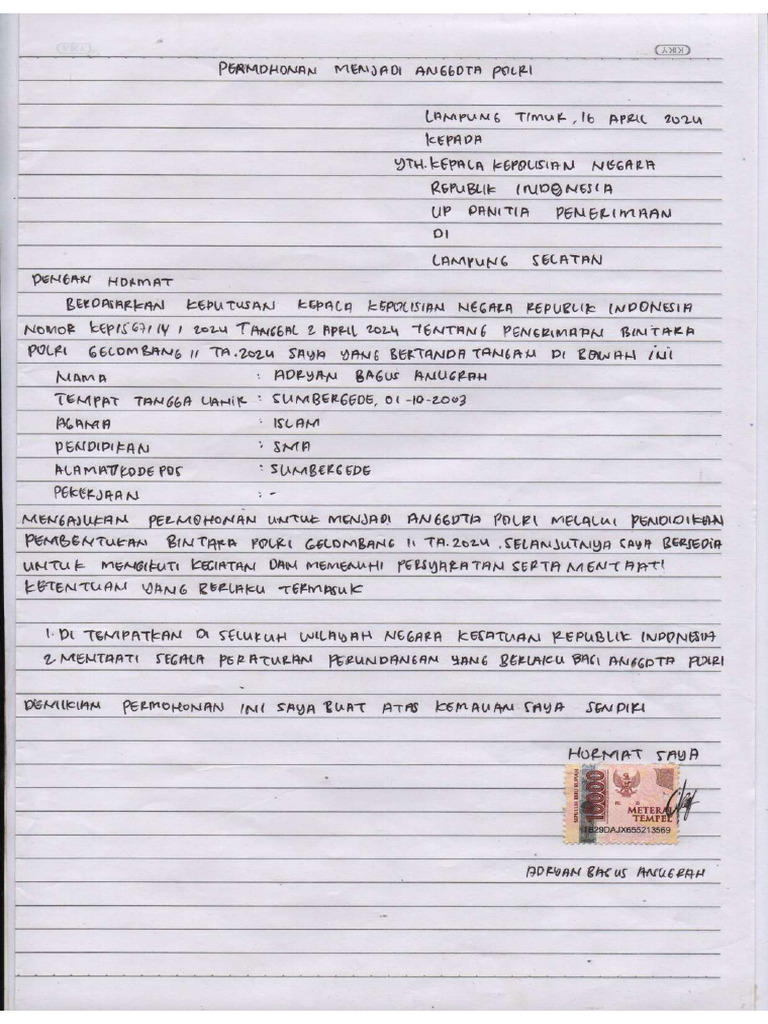 KIKY
PERMOHONAN MENJADI ANGGOTA POLRI
LAMPUNG TIMUR, 16 APRIL 2024
KEPADA
YTH. KEPALA KEPOLISIAN NEGARA
REPUBLIK INDONESIA
UP PANITIA PENERIMAAN
DI
LAMPUNG SELATAN
DENGAN HORMAT
BERDASARKAN KEPUTUSAN KEPALA KEPOLISIAN NEGARA REPUBLIK INDONESIA
NOMOR KEP/567/IV/2024 TANGGAL 2 APRIL 2024 TENTANG PENERIMAAN BINTARA
POLRI GELOMBANG II TA.2024 SAYA YANG BERTANDA TANGAN DI BAWAH INI
NAMA : ADRYAN BAGUS ANUGRAH
TEMPAT TANGGA LAHIR : SUMBERGEDE, 01-10-2003
AGAMA : ISLAM
PENDIDIKAN : SMA
ALAMAT/KODE POS : SUMBERGEDE
PEKERJAAN : -
MENGAJUKAN PERMOHONAN UNTUK MENJADI ANGGOTA POLRI MELALUI PENDIDIKAN
PEMBENTUKAN BINTARA POLRI GELOMBANG II TA.2024. SELANJUTNYA SAYA BERSEDIA
UNTUK MENGIKUTI KEGIATAN DAN MEMENUHI PERSYARATAN SERTA MENTAATI
KETENTUAN YANG BERLAKU TERMASUK
1. DI TEMPATKAN DI SELURUH WILAYAH NEGARA KESATUAN REPUBLIK INDONESIA
2. MENTAATI SEGALA PERATURAN PERUNDANGAN YANG BERLAKU BAGI ANGGOTA POLRI
DEMIKIAN PERMOHONAN INI SAYA BUAT ATAS KEMAUAN SAYA SENDIRI
HORMAT SAYA
SEPULUH RIBU RUPIAH
10000
METERAI
TEMPEL
1B29DAJX655213569
ADRYAN BAGUS ANUGRAH